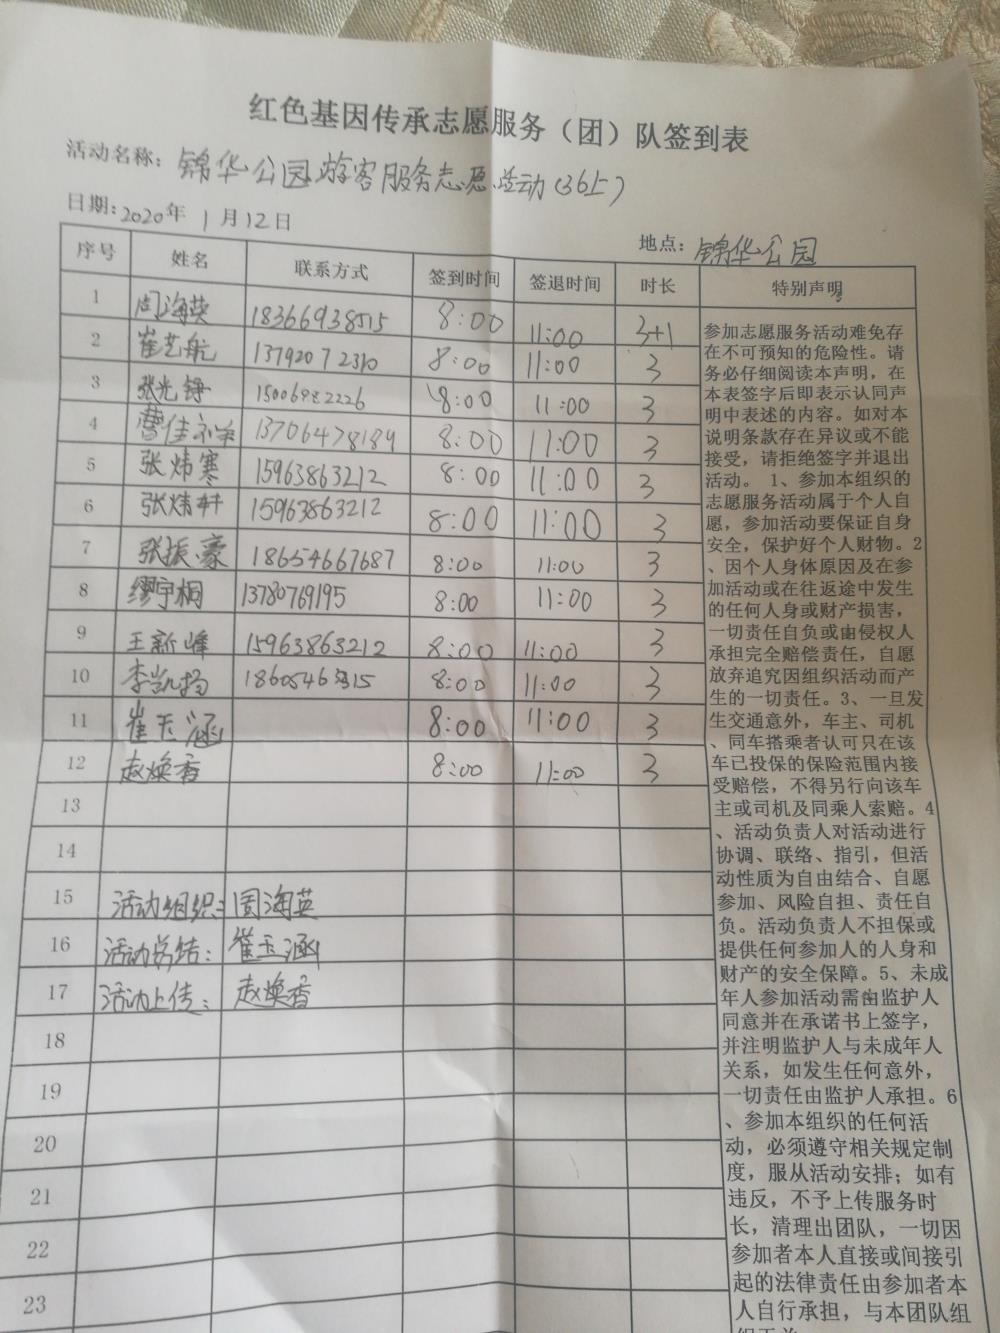 红色基因传承志愿服务（团）队签到表
活动名称：锦华公园游客服务志愿活动（36上）
日期：2020年 1月12日
地点：锦华公园
序号 姓名 联系方式 签到时间 签退时间 时长 特别声明
1 周海英 18366938515 8:00 11:00 3+1
2 崔艺航 13792072310 8:00 11:00 3
3 张光铮 15006982226 8:00 11:00 3
4 曹佳 13706478189 8:00 11:00 3
5 张炜寒 15963863212 8:00 11:00 3
6 张炜轩 15963863212 8:00 11:00 3
7 张振豪 18654667687 8:00 11:00 3
8 缪宇桐 13780769195 8:00 11:00 3
9 王新峰 15963863212 8:00 11:00 3
10 李凯扬 8:00 11:00 3
11 崔玉涵 8:00 11:00 3
12 赵焕香 8:00 11:00 3
13
14
15 活动组织：周海英
16 活动总结：崔玉涵
17 活动上传：赵焕香
18
19
20
21
22
23
参加志愿服务活动难免存
在不可预知的危险性。请
务必仔细阅读本声明，在
本表签字后即表示认同声
明中表述的内容。如对本
说明条款存在异议或不能
接受，请拒绝签字并退出
活动。 1、参加本组织的
志愿服务活动属于个人自
愿，参加活动要保证自身
安全，保护好个人财物。2
、因个人身体原因及在参
加活动或在往返途中发生
的任何人身或财产损害，
一切责任自负或由侵权人
承担完全赔偿责任，自愿
放弃追究因组织活动而产
生的一切责任。3、一旦发
生交通意外，车主、司机
、同车搭乘者认可只在该
车已投保的保险范围内接
受赔偿，不得另行向该车
主或司机及同乘人索赔。4
、活动负责人对活动进行
协调、联络、指引，但活
动性质为自由结合、自愿
参加、风险自担、责任自
负。活动负责人不担保或
提供任何参加人的人身和
财产的安全保障。5、未成
年人参加活动需由监护人
同意并在承诺书上签字，
并注明监护人与未成年人
关系，如发生任何意外，
一切责任由监护人承担。6
、参加本组织的任何活
动，必须遵守相关规定制
度，服从活动安排；如有
违反，不予上传服务时
长，清理出团队，一切因
参加者本人直接或间接引
起的法律责任由参加者本
人自行承担，与本团队组